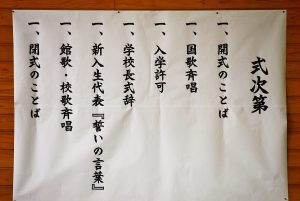 式次第
一、開式のことば
一、国歌斉唱
一、入学許可
一、学校長式辞
一、新入生代表『誓いの言葉』
一、館歌・校歌斉唱
一、閉式のことば